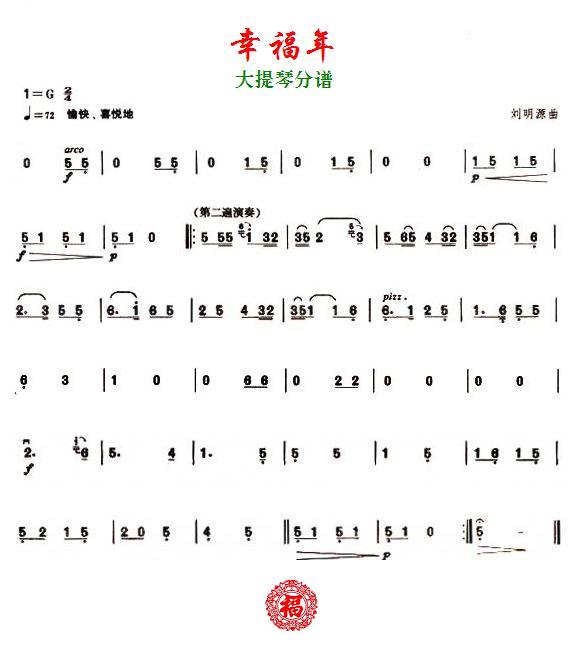 幸福年
大提琴分谱
1=G 2/4
♩=72 愉快、喜悦地
刘明源 曲
arco
0 5 5 | 0 5 5 | 0 1 5 | 0 1 5 | 0 0 | 1 5 1 5 |
f p
(第二遍演奏)
5 1 5 1 | 5 1 0 |: 5 55 1 32 | 35 2 3 | 5 65 4 32 | 351 1 6 |
f p
pizz.
2. 3 5 5 | 6. 1 6 5 | 2 5 4 32 | 351 1 6 | 6. 1 2 5 | 1. 6 5 5 |
6 3 | 1 0 | 0 6 6 | 0 2 2 | 0 0 | 0 0 |
2. 6 | 5. 4 | 1. 5 | 5 5 | 1 5 | 1 6 1 5 |
f
5 2 1 5 | 2 0 5 | 4 5 || 5 1 5 1 | 5 1 0 :|| 5 - ||
p
福